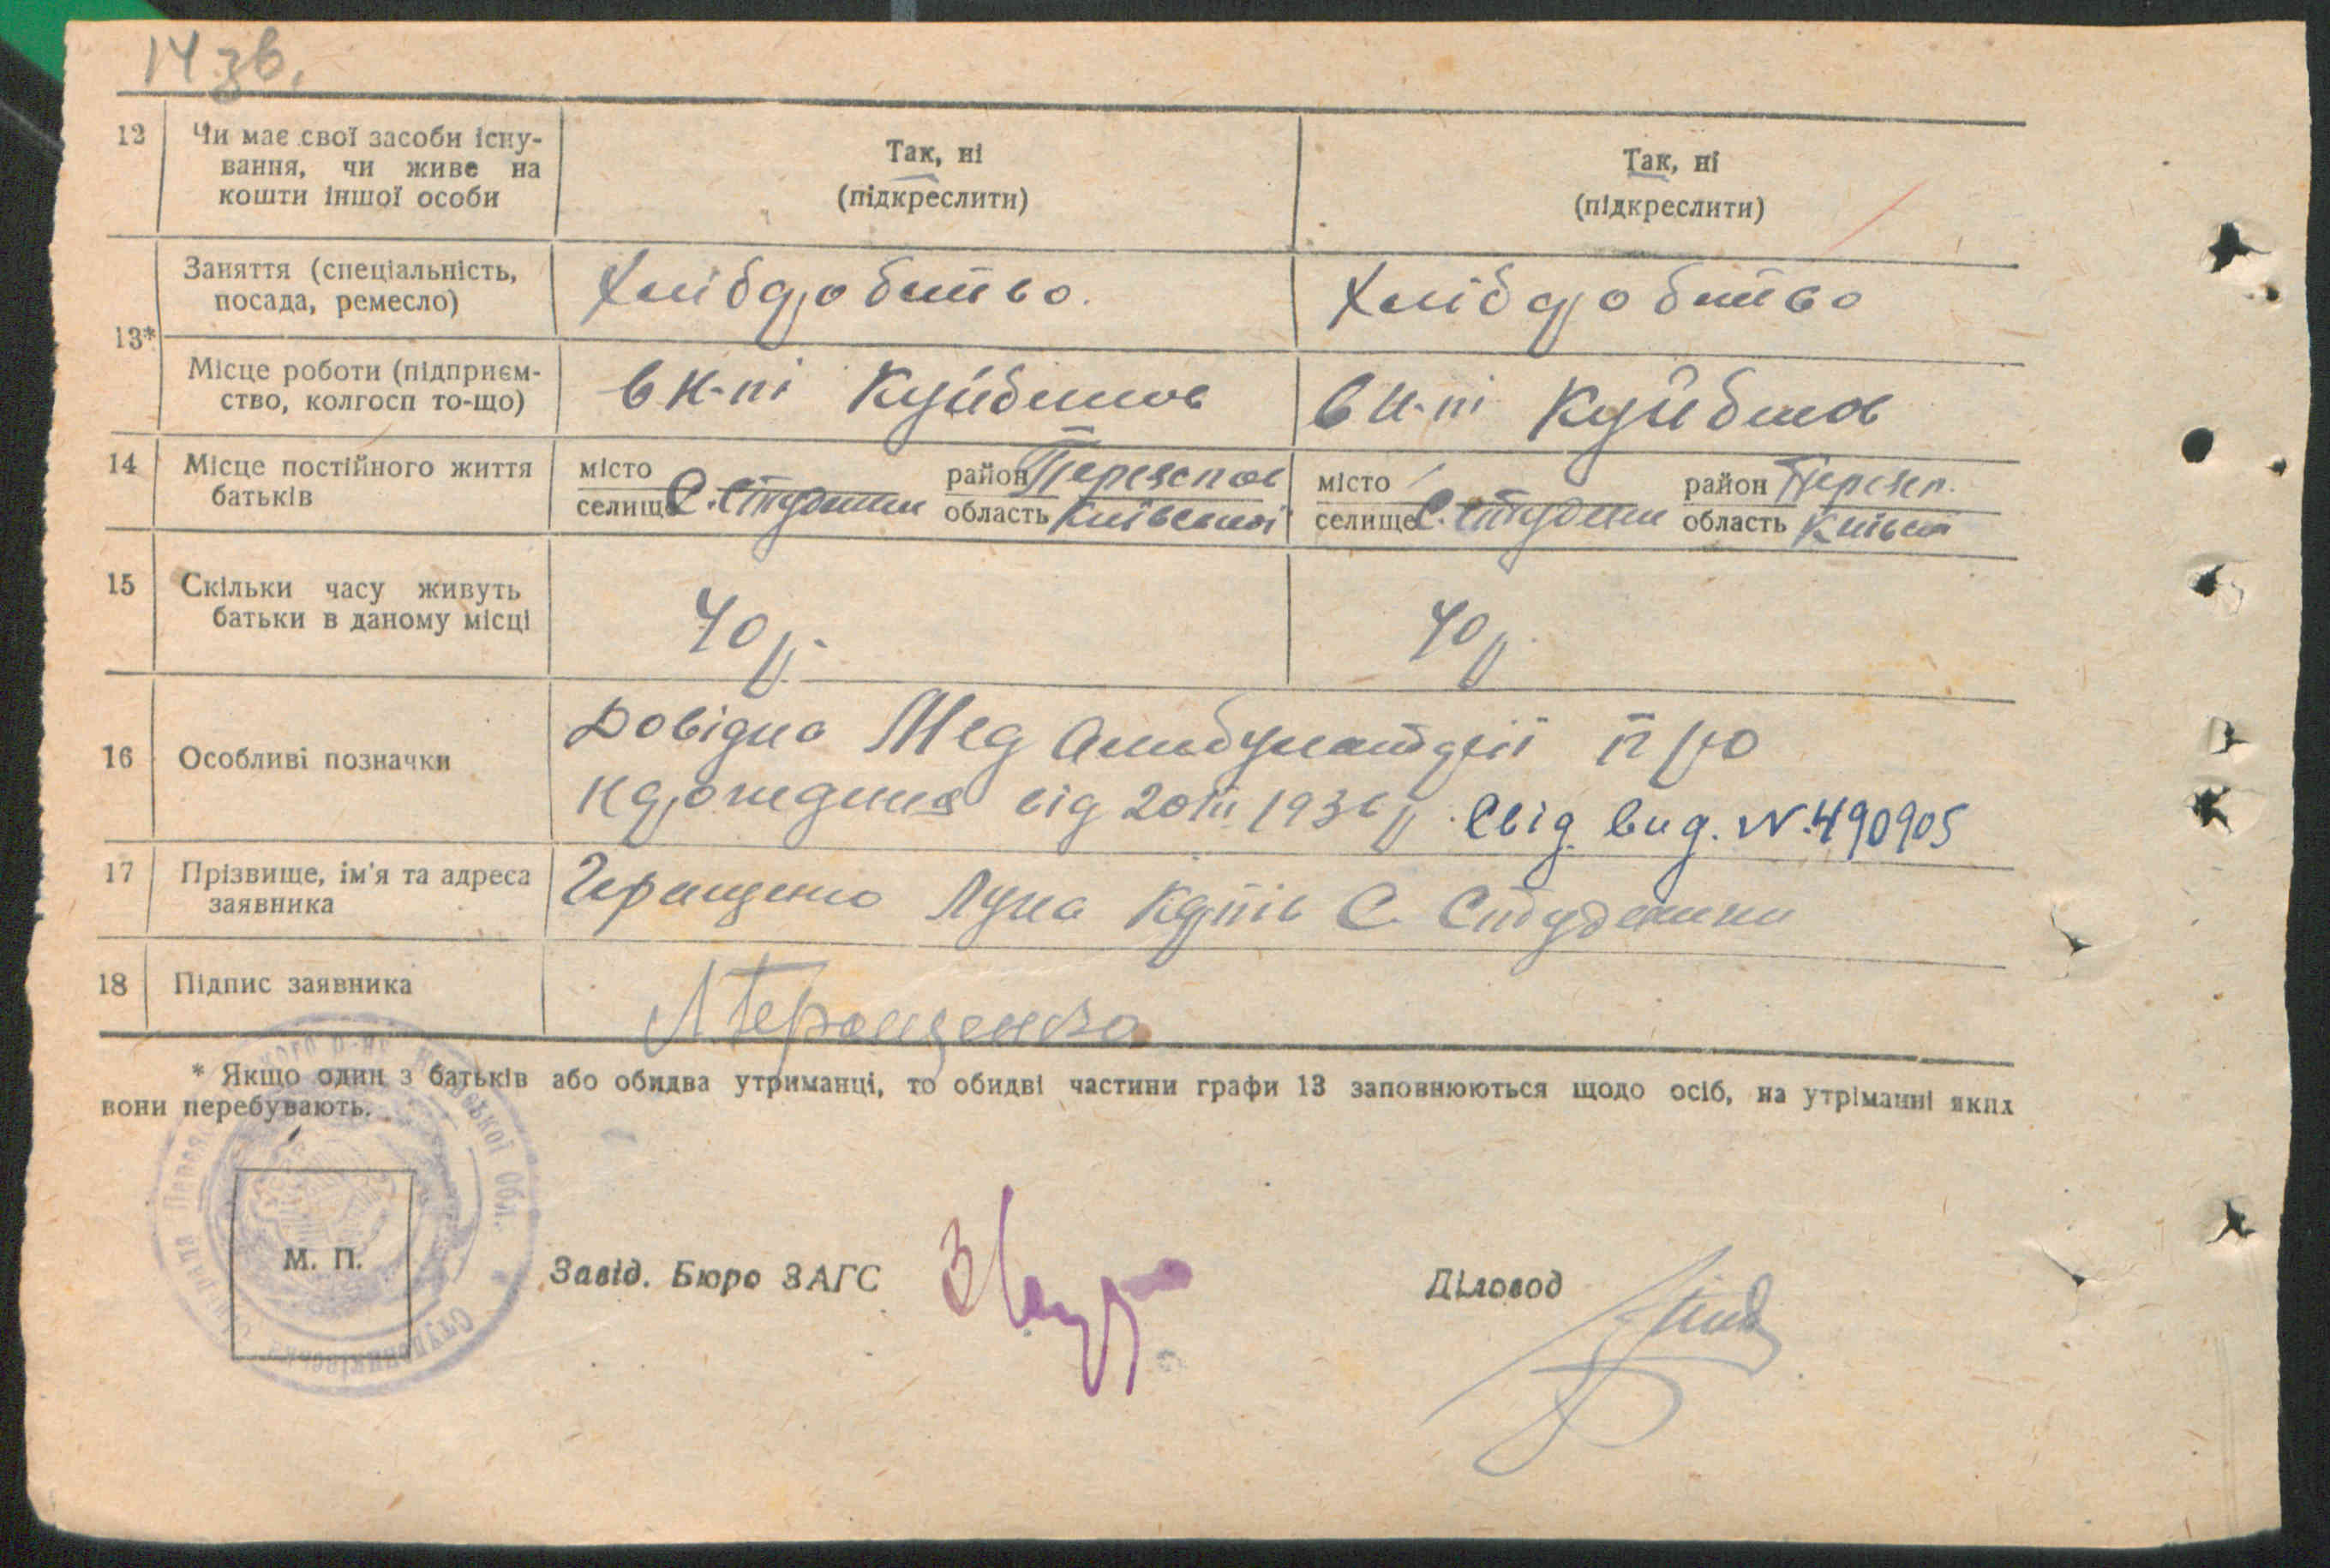 14 зв.
12 Чи має свої засоби існу-
вання, чи живе на
кошти іншої особи
Так, ні
(підкреслити)
Так, ні
(підкреслити)
13*
Заняття (спеціальність,
посада, ремесло)
Хлібдробитво.
Хлібдробитво
Місце роботи (підприєм-
ство, колгосп то-що)
в к-пі Куйбишов
в к-пі Куйбшов
14 Місце постійного життя
батьків
місто
селище С. Студеники
район Переяслов
область Київської
місто
селище С. Студеники
район Переясл.
область Київсь
15 Скільки часу живуть
батьки в даному місці
40 р.
40 р.
16 Особливі позначки
Довідка Мед Амбулаторії про
народження від 20 III 193 р. Свід. вид. N.490905
17 Прізвище, ім'я та адреса
заявника
Геращенко Лука С. Студеники
18 Підпис заявника
Л Геращенко
* Якщо один з батьків або обидва утриманці, то обидві частини графи 13 заповнюються щодо осіб, на утріманні яких
вони перебувають.
М. П.
Завід. Бюро ЗАГС
Діловод